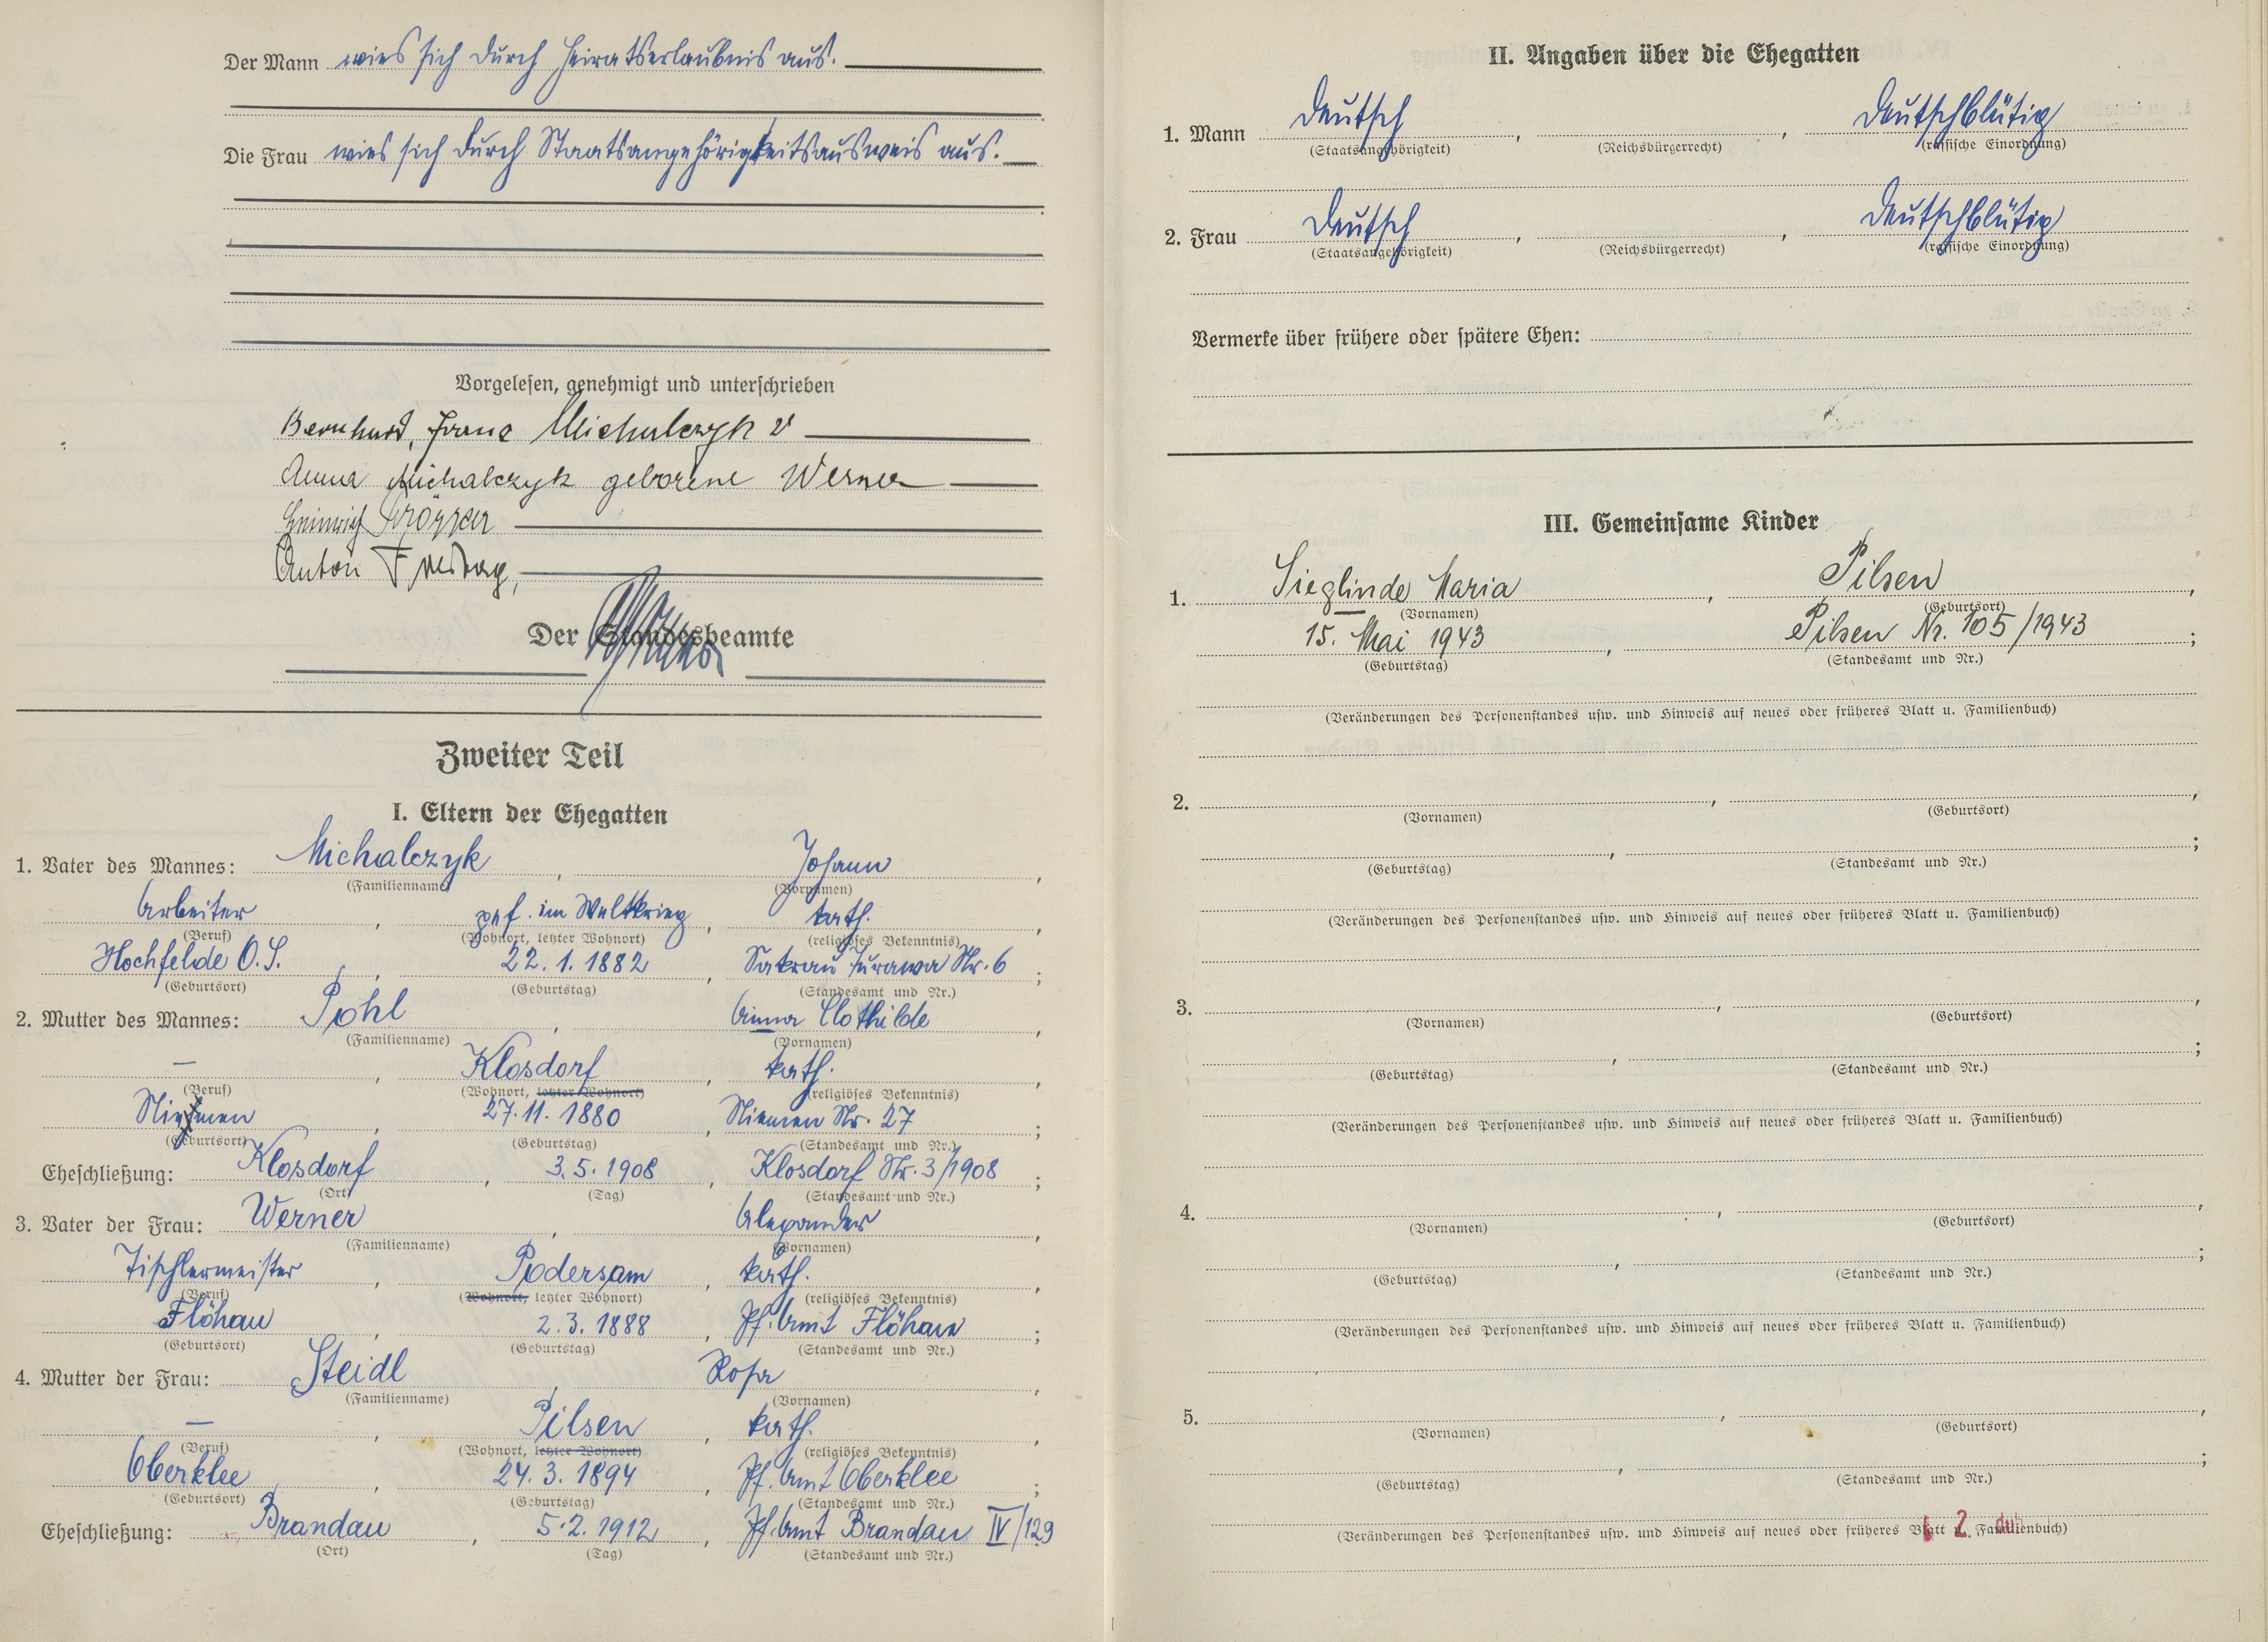 Der Mann wies sich durch Heiratserlaubnis aus.
Die Frau wies sich durch Staatsangehörigkeitsausweis aus.
Vorgelesen, genehmigt und unterschrieben
Bernhard, Franz Michalczyk
Anna Michalczyk geborene Werner
Heinrich
Anton Freitag,
Der Standesbeamte
Zweiter Teil
I. Eltern der Ehegatten
1. Vater des Mannes: Michalczyk, Johann,
(Familienname) (Vornamen)
Arbeiter, gef. im Weltkrieg, kath.,
(Beruf) (Wohnort, letzter Wohnort) (religiöses Bekenntnis)
Hochfelde O.S., 22.1.1882, Sakrau Turawa Nr. 6;
(Geburtsort) (Geburtstag) (Standesamt und Nr.)
2. Mutter des Mannes: Pohl, Anna Clothilde,
(Familienname) (Vornamen)
—, Klosdorf, kath.,
(Beruf) (Wohnort, letzter Wohnort) (religiöses Bekenntnis)
Niemen, 27.11.1880, Niemen Nr. 27;
(Geburtsort) (Geburtstag) (Standesamt und Nr.)
Eheschließung: Klosdorf, 3.5.1908, Klosdorf Nr. 3/1908;
(Ort) (Tag) (Standesamt und Nr.)
3. Vater der Frau: Werner, Alexander,
(Familienname) (Vornamen)
Tischlermeister, Podersam, kath.,
(Beruf) (Wohnort, letzter Wohnort) (religiöses Bekenntnis)
Flöhau, 2.3.1888, Pf. Amt Flöhau;
(Geburtsort) (Geburtstag) (Standesamt und Nr.)
4. Mutter der Frau: Steidl, Rosa,
(Familienname) (Vornamen)
—, Pilsen, kath.,
(Beruf) (Wohnort, letzter Wohnort) (religiöses Bekenntnis)
Oberklee, 24.3.1894, Pf. Amt Oberklee;
(Geburtsort) (Geburtstag) (Standesamt und Nr.)
Eheschließung: Brandau, 5.2.1912, Pf. Amt Brandau IV/129
(Ort) (Tag) (Standesamt und Nr.)
II. Angaben über die Ehegatten
1. Mann Deutsch, , Deutschblütig
(Staatsangehörigkeit) (Reichsbürgerrecht) (rassische Einordnung)
2. Frau Deutsch, , Deutschblütig
(Staatsangehörigkeit) (Reichsbürgerrecht) (rassische Einordnung)
Vermerke über frühere oder spätere Ehen:
III. Gemeinsame Kinder
1. Sieglinde Maria, Pilsen,
(Vornamen) (Geburtsort)
15. Mai 1943, Pilsen Nr. 105/1943;
(Geburtstag) (Standesamt und Nr.)
(Veränderungen des Personenstandes usw. und Hinweis auf neues oder früheres Blatt u. Familienbuch)
2. , ,
(Vornamen) (Geburtsort)
, ;
(Geburtstag) (Standesamt und Nr.)
(Veränderungen des Personenstandes usw. und Hinweis auf neues oder früheres Blatt u. Familienbuch)
3. , ,
(Vornamen) (Geburtsort)
, ;
(Geburtstag) (Standesamt und Nr.)
(Veränderungen des Personenstandes usw. und Hinweis auf neues oder früheres Blatt u. Familienbuch)
4. , ,
(Vornamen) (Geburtsort)
, ;
(Geburtstag) (Standesamt und Nr.)
(Veränderungen des Personenstandes usw. und Hinweis auf neues oder früheres Blatt u. Familienbuch)
5. , ,
(Vornamen) (Geburtsort)
, ;
(Geburtstag) (Standesamt und Nr.)
(Veränderungen des Personenstandes usw. und Hinweis auf neues oder früheres Blatt u. Familienbuch)